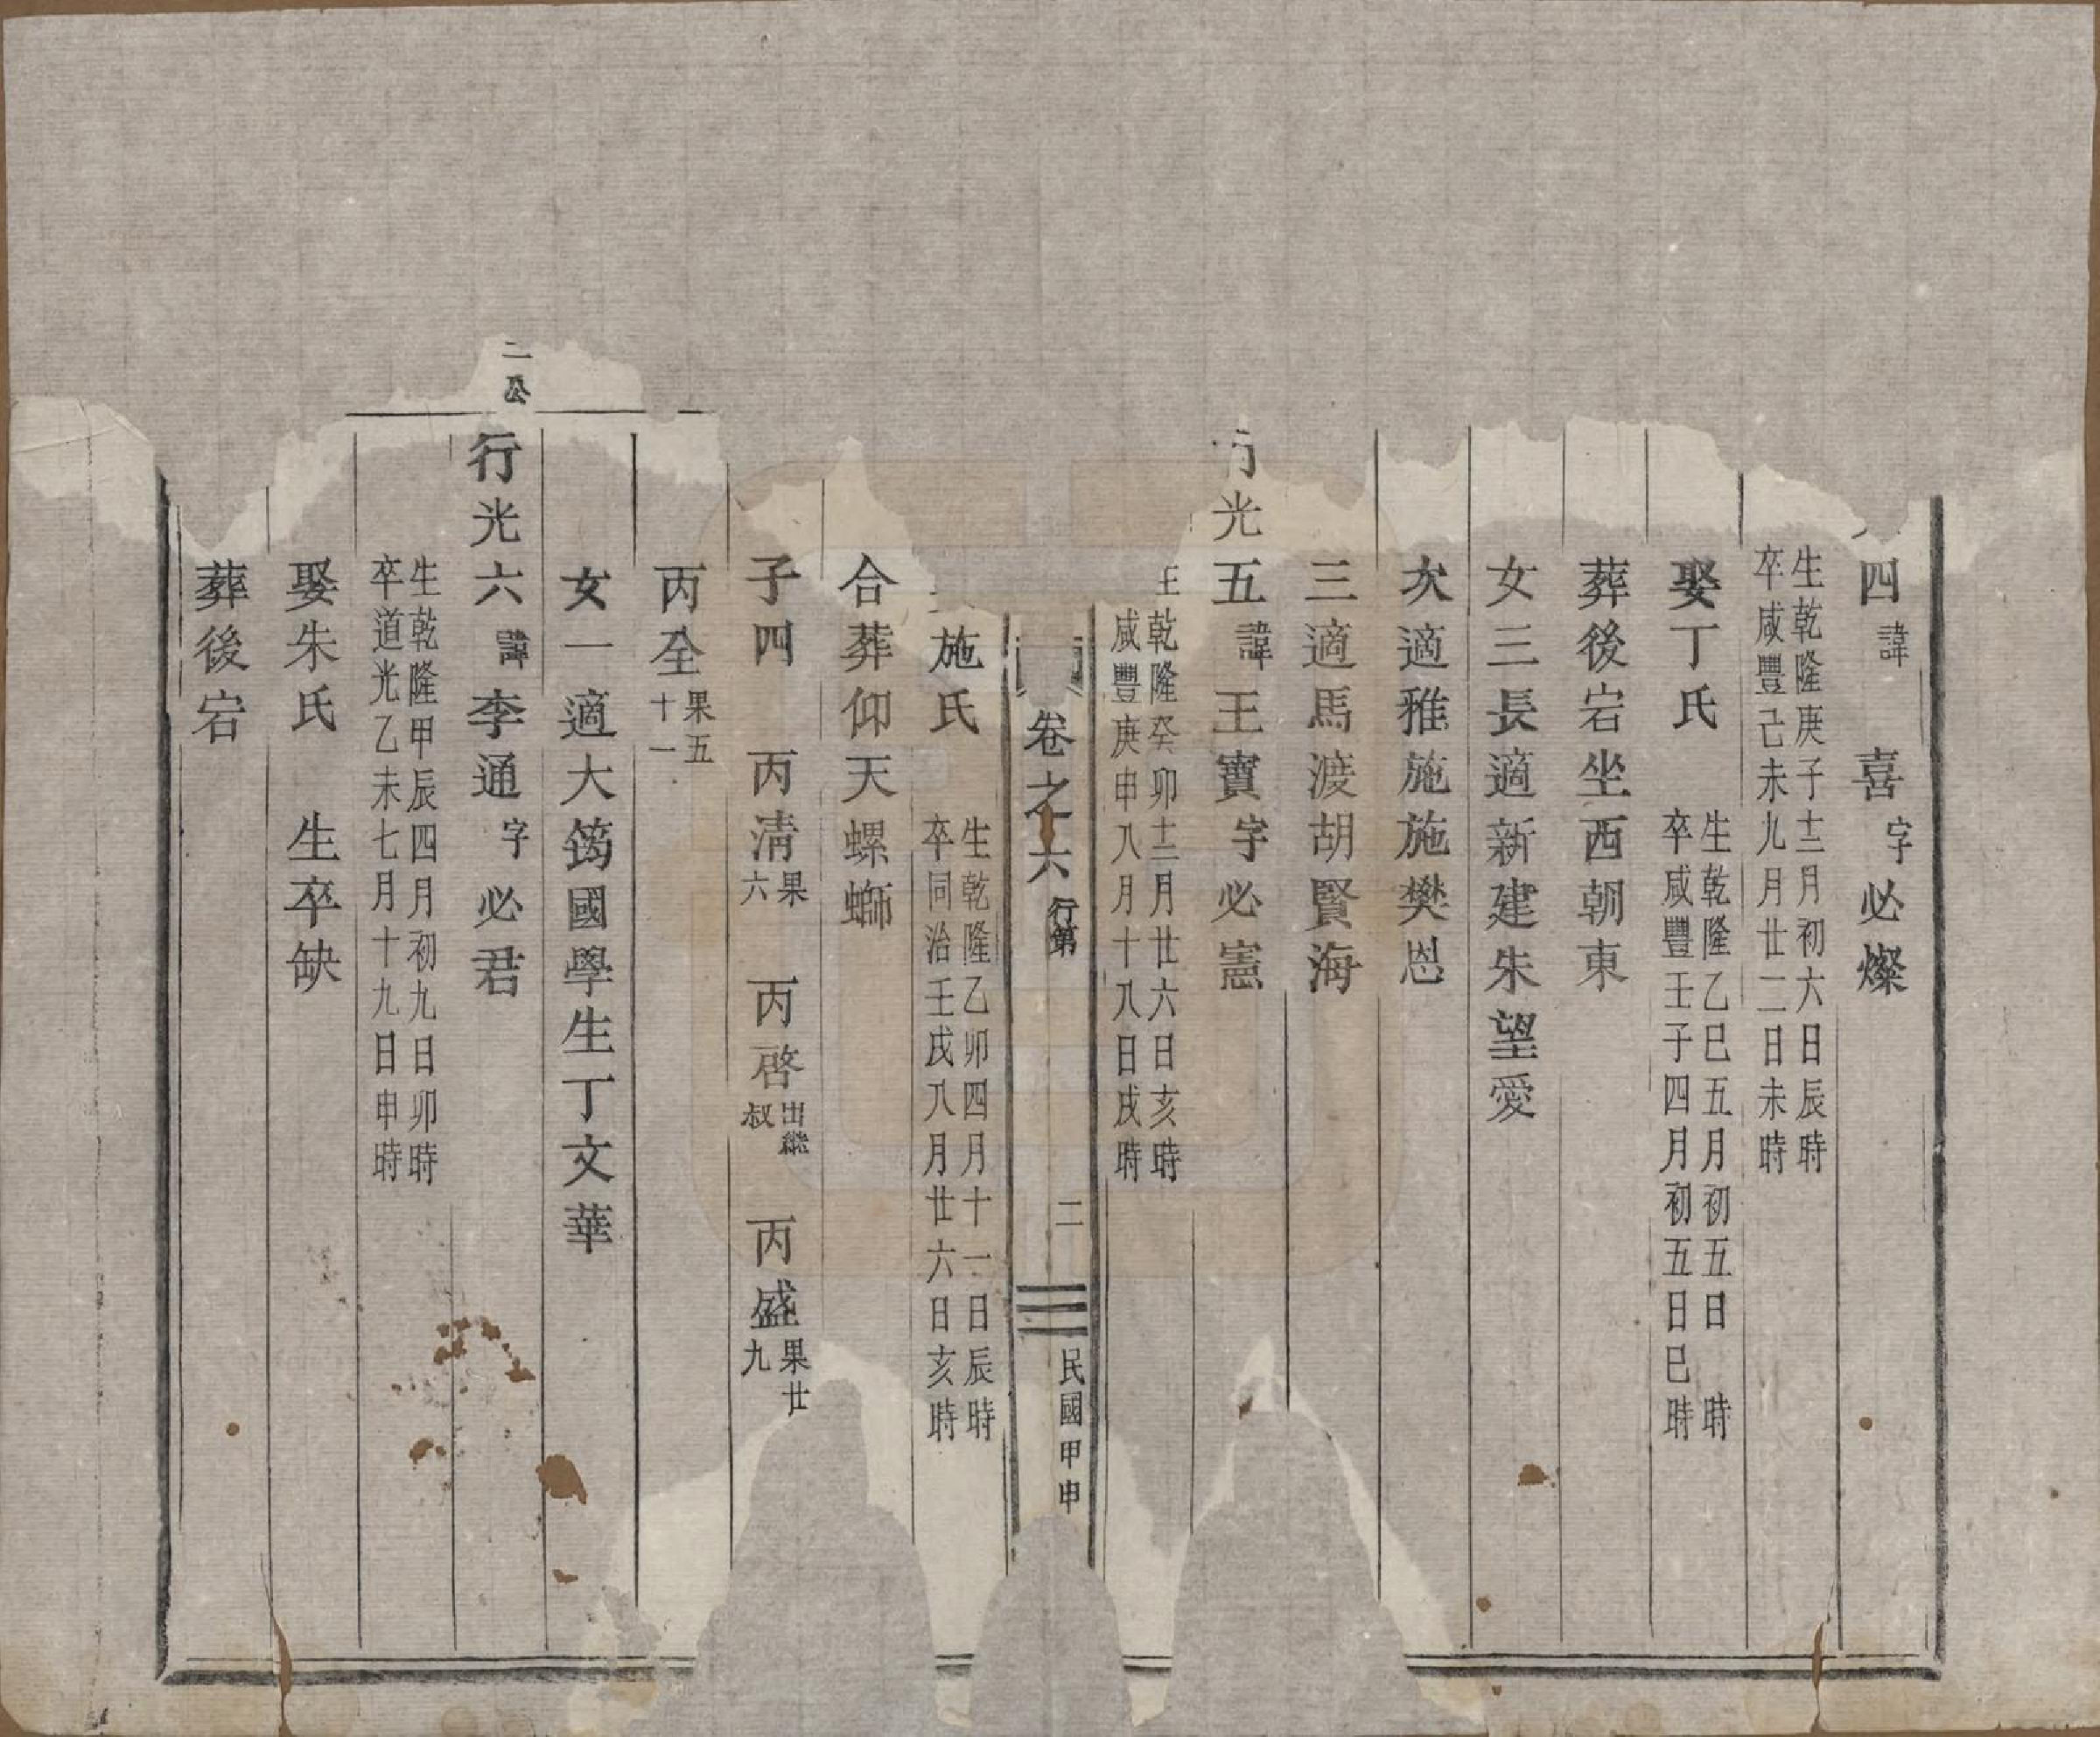 四諱喜字必燦
生乾隆庚子十二月初六日辰時
卒咸豐己未九月廿二日未時
娶丁氏
生乾隆乙巳五月初五日 時
卒咸豐壬子四月初五日巳時
葬後宕坐西朝東
女三長適新建朱望愛
次適雅施施樊恩
三適馬渡胡賢海
行光五諱王寶字必憲
生乾隆癸卯十二月廿六日亥時
咸豐庚申八月十八日戌時
卷之六 行第 二 民國甲申
施氏
生乾隆乙卯四月十一日辰時
卒同治壬戌八月廿六日亥時
合葬仰天螺螄
子四 丙清果六 丙啓出繼叔 丙盛果廿九
丙全果五十一
女一適大筠國學生丁文華
二公
行光六諱李通字必君
生乾隆甲辰四月初九日卯時
卒道光乙未七月十九日申時
娶朱氏 生卒缺
葬後宕